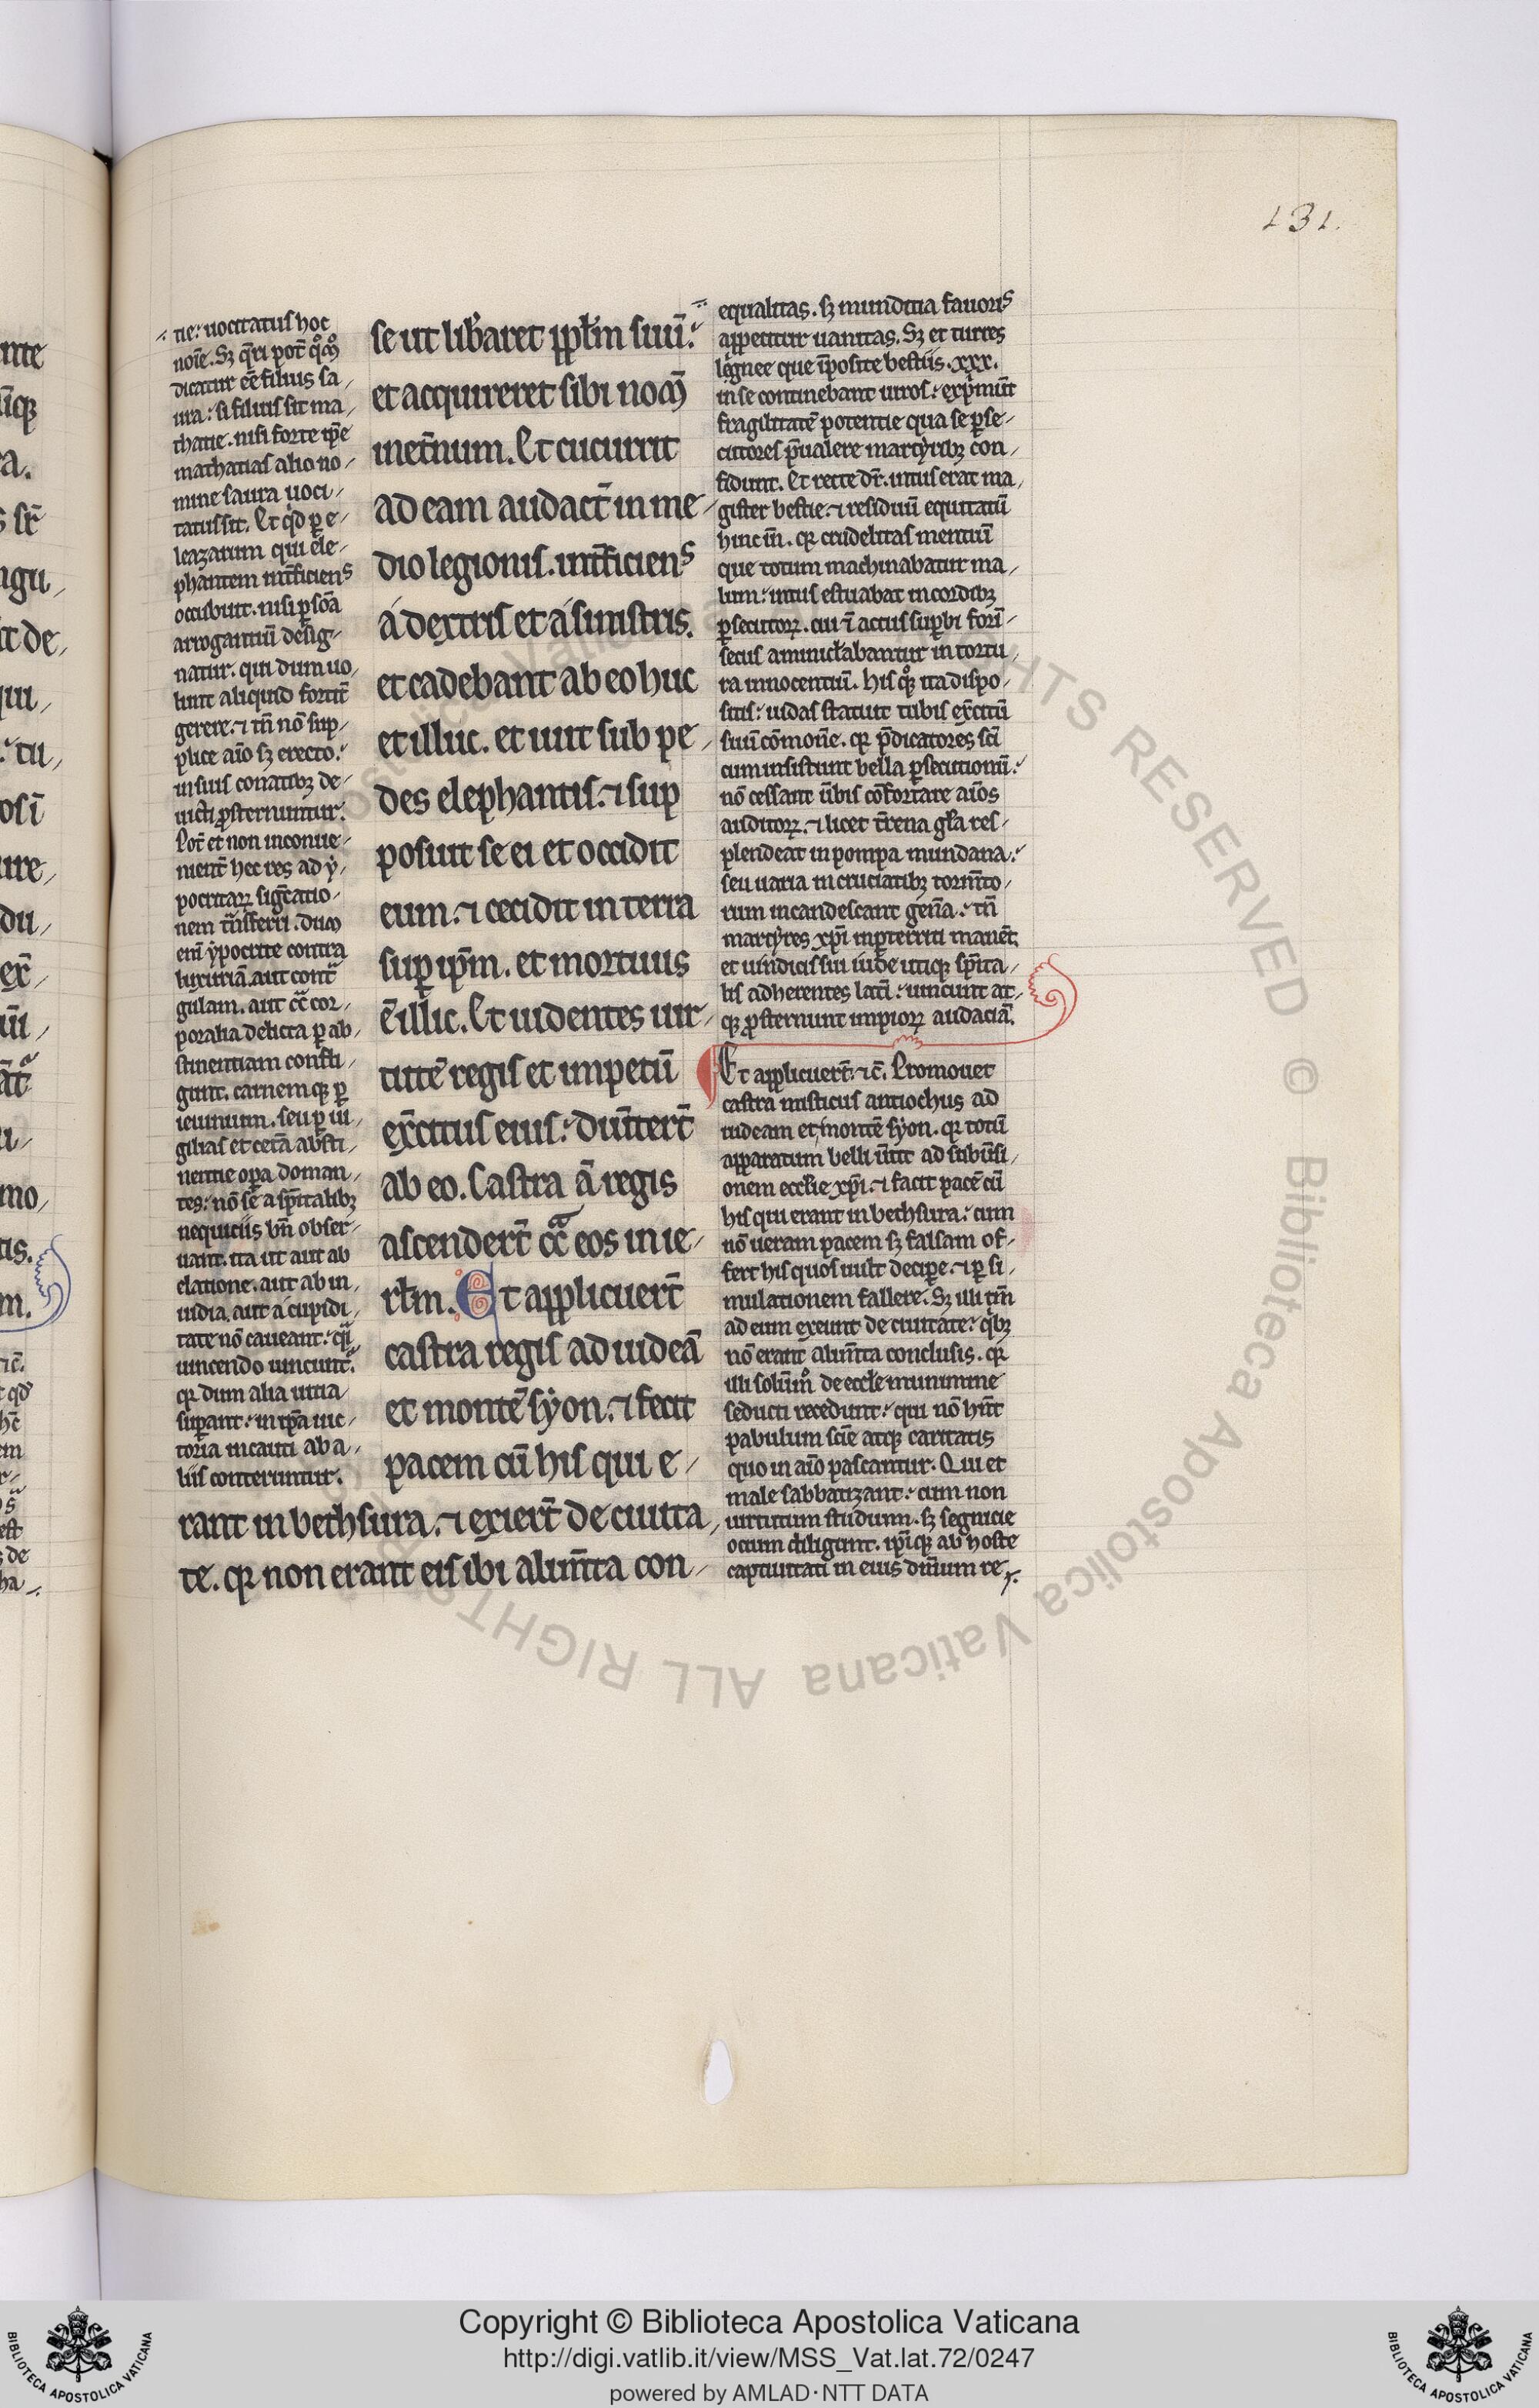 131.
tie: uocitatus hoc
noīe. Sȝ q̄ri pot̄ q̊m̊
dicatur eē filius sa,
ura: si filius sit ma,
thatie. nisi forte ip̄e
mathatias alio no,
mine saura uoci,
tatus sit. Et qd̓ ꝑ e,
leazarum qui ele,
phantem int̄ficiens
occubuit. nisi ꝑsōa
arrogantiū desig,
natur. qui dum uo,
lunt aliquid fortit̄
gerere. ⁊ tn̄ nō sup,
plice aīo sȝ erecto:
in suis conatibȝ de,
uicti ꝓsternuntur.
Pot̄ et non inconue,
nient̄ hec res ad y,
pocritaꝝ sigc̄atio,
nem tͣnsferri. dum
eni᷑ ypocrite contra
luxuriā. aut contͣ
gulam. aut cͣc̄ cor,
poralia delicta ꝑ ab,
stinentiam confli,
gunt. carnemqꝫ ꝑ
ieiunium. seu ꝑ ui,
gilias et cet̄a absti,
nentie oꝑa doman,
tes: nō se a sp̄italibȝ
nequiciis bn̄ obser,
uant. ita ut aut ab
elatione. aut ab in,
uidia. aut a cupidi,
tate nō caueant: qͣi
uincendo uincunt̉.
qꝛ dum alia uitia
suꝑant: in ip̄a uic,
toria incauti ab a,
liis conteruntur.
se ut libaret ppl̄m suū:
et acquireret sibi nom̄
inet̄num. Et cucurrit
ad eam audact̄ in me,
dio legionis. int̄ficiens
a dextris et a sinistris.
et cadebant ab eo huc
et illuc. et iuit sub pe,
des elephantis. ⁊ sup
posuit se ei et occidit
eum. ⁊ cecidit in terra
suꝑ ip̄m. et mortuus
ē illic. Et uidentes uir,
tutē regis et impetū
ex̄citus eius: diūtert̄
ab eo. Castra ā regis
ascendert̄ cͣc̄ eos in ie,
rl̄m. Et applicuert̄
castra regis ad iudeā
et montē syon. ⁊ fecit
pacem cū his qui e,
rant in bethsura. ⁊ exiert̄ de ciuita,
te. qꝛ non erant eis ibi alim̄ta con,
equalitas. sȝ munditia fauoris
appetitur uanitas. Sȝ et turres
lignee que īposite bestiis .xxx.
in se continebant uiros: exp̓mūt
fragilitatē potentie qua se ꝑse,
cutores p̄ualere martyribȝ con,
fidunt. Et recte dr̄. intus erat ma,
gister bestie. ⁊ residuū equitatū
hinc īn. qꝛ crudelitas mentiū
que totum machinabatur ma,
lum: intus estuabat in cordibȝ
ꝑsecutoꝝ. cui ⁊ actus suꝑbi forī,
secus amiĩcl̄abantur in tortu,
ra innocentiū. His q̊ꝫ ita dispo,
sitis: iudas statuit tubis ex̄citū
suū cōmoūe. qꝛ p̄dicatores sc̄i
cum insistunt bella ꝑsecutionū:
nō cessant ūbis cōfortare aīos
auditoꝝ. ⁊ licet t̄rena gl̄a res,
plendeat in pompa mundana:
seu uaria in cruciatibȝ torm̄to,
rum incandescant gen̄a: tn̄
martyres xp̄i inꝑterriti manēt.
et uindicis sui iube utiqꝫ sp̄ita,
lis adherentes lateī: uincunt at,
qꝫ ꝓsternunt impioꝝ audaciā.
Et applicuert̄. ⁊c̄. Promouet
castra misticus antiochus ad
iudeam et montē syon. qꝛ totū
apparatum belli ūtit ad subūsi,
onem eccl̄ie xp̄i. ⁊ facit pacē cū
his qui erant in bethsura: cum
nō ueram pacem sȝ falsam of,
fert his quos uult deciꝑe. ⁊ ꝑ si,
mulationem fallere. Sȝ illi tm̄
ad eum exeunt de ciuitate: q̓bȝ
nō erant alim̄ta conclusis. qꝛ
illi solūm̊ de eccl̄e munimine
seducti recedunt: qui nō hn̄t
pabulum scīe atqꝫ caritatis
quo in aīo pascantur. Qui et
male sabbatizant: cum non
uirtutum studium. sȝ segnicie
ocium diligunt. ip̄iqꝫ ab hoste
captiuitati in eius dn̄ium re,
Copyright © Biblioteca Apostolica Vaticana
http://digi.vatlib.it/view/MSS_Vat.lat.72/0247
powered by AMLAD·NTT DATA